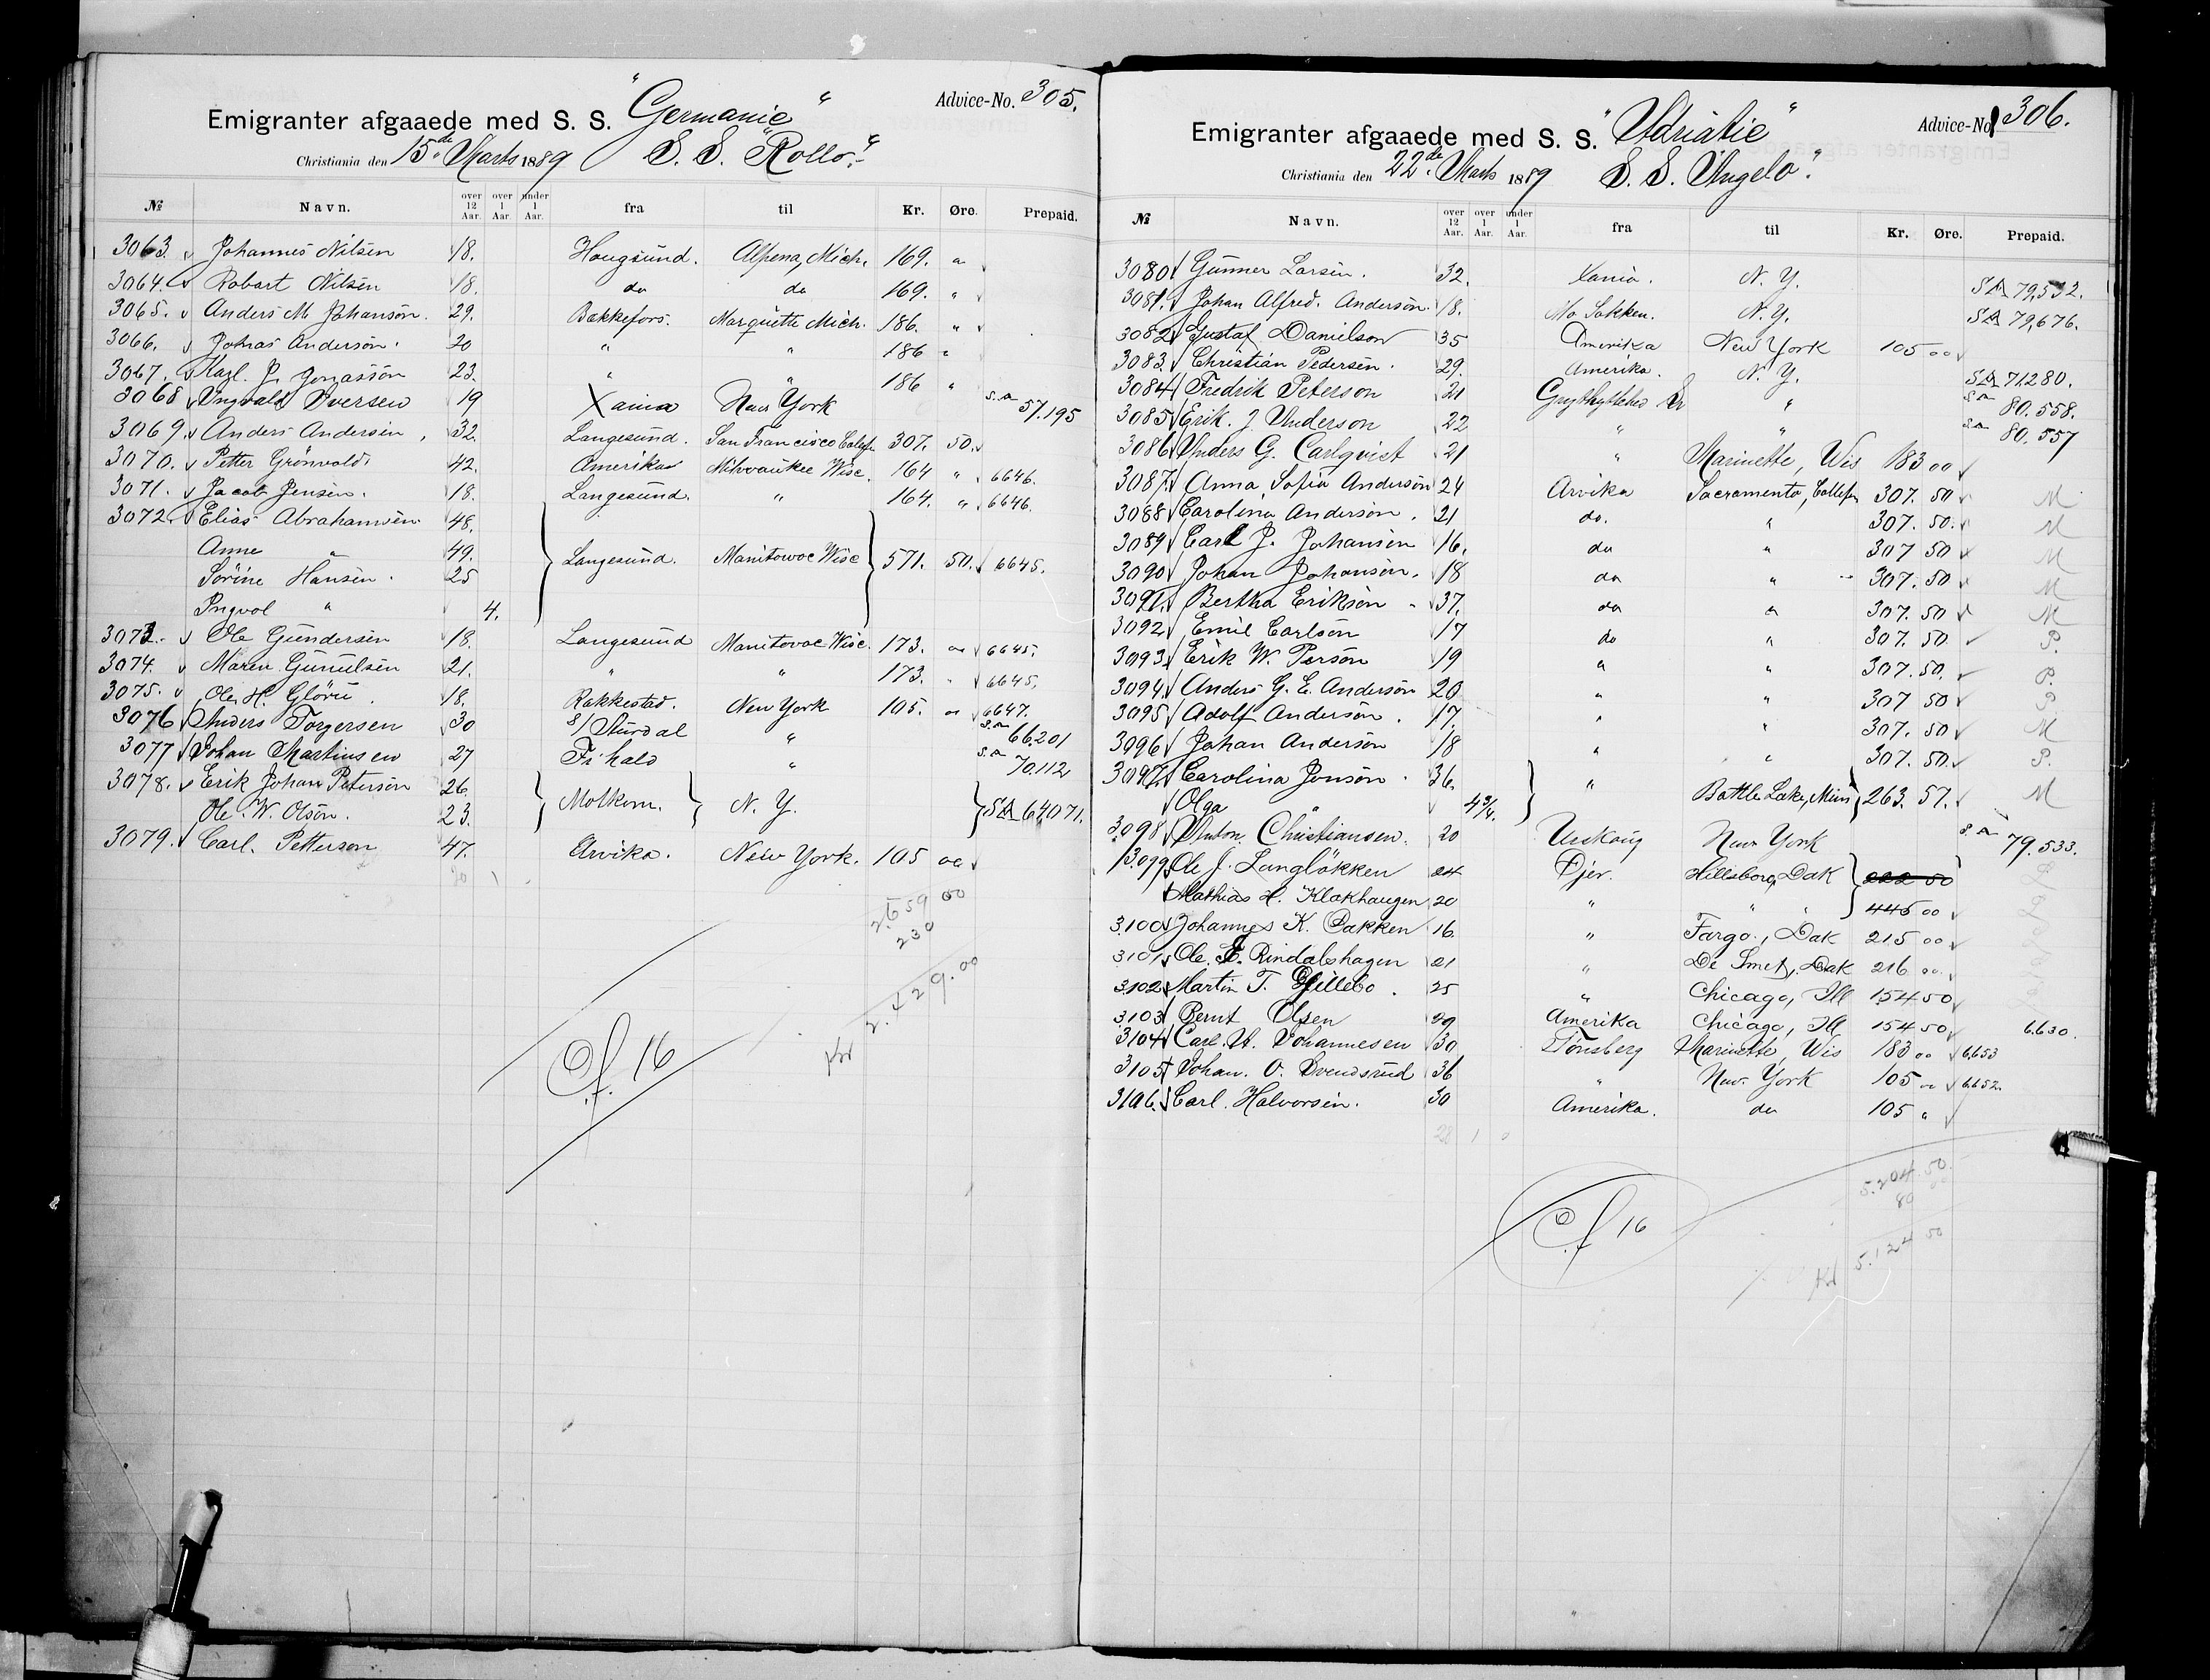 Advice-No. 305.
Emigranter afgaaede med S. S. "Germanic"
Christiania den 15de Marts 1889 S. S. "Rollo."
№ Navn. over 12 Aar. over 1 Aar. under 1 Aar. fra til Kr. Øre. Prepaid.
3063. Johannes Nilsen 18. Haugsund. Alpena, Mich. 169. "
3064. Robart Nilsen 18. do do 169. "
3065. Anders M Johanson. 29. Bakkefors. Marquette Mich. 186. "
3066. Johas Anderson. 20 " " 186 "
3067. Karl. P. Jonasson 23. " " 186 "
3068 Ingvald Iversen 19 Xania New York S.A 57.195
3069. Anders Andersen, 32. Langesund. San Francisco Calif. 307. 50.
3070. Petter Grönvold. 42. Amerika Milwaukee Wisc. 164 " 6646.
3071. Jacob Jensen. 18. Langesund. " 164. " 6646.
3072. Elias Abrahamsen 48.
Anne " 49. Langesund. Manitowoc Wisc 571. 50. 6645.
Sörine Hansen. 25
Ingvol " 4.
3073. Ole Gundersen 18. Langesund Manitovoc Wisc. 173. " 6645.
3074. Maren Gunulsen 21. " " 173. " 6645.
3075. Ole H. Glörii 18. Rakkestad. New York 105. " 6647.
3076 Anders Torgersen 30 S/Sturdal " S.A 66.201
3077 Johan Martinsen 27 Fr. hald " S.A 70.112
3078. Erik Johan Peterson 26. Molkom. N. Y. SA 64071.
Ole W. Olsön. 23.
3079. Carl. Petterson 47. Arvika. New York. 105 00
20 1
2.659 00
230
Kr 2.429.00
Cf. 16
Advice-No 306.
Emigranter afgaaede med S. S. "Adriatic"
Christiania den 22de Marts 1889 S. S. "Angelo".
№ Navn. over 12 Aar. over 1 Aar. under 1 Aar. fra til Kr. Øre. Prepaid.
3080 Gunner Larsen. 32. Xania. N. Y. SA 79,532.
3081. Johan Alfred. Anderson. 18. Mo Sokken. N. Y. SA 79,676.
3082 Gustaf Danielson 35 Amerika New York 105 00
3083. Christian Pedersen. 29. Amerika. N. Y. SA 71280.
3084 Fredrik Peterson 21 " S.A 80.558.
3085 Erik. J. Anderson 22 " " S.A 80.557
3086 Anders G. Carlqvist 21 " Marinette, Wis 183 00
3087. Anna Sofia Anderson 24 Arvika Sacramento, Callifor 307. 50 M
3088 Carolina Anderson. 21 do. " 307. 50. M
3089 Carl J. Johansen 16. do " 307 50 M
3090 Johan Johanson. 18 do " 307. 50 M
3091. Bertha Erikson 37. do " 307. 50 M
3092 Emil Carlson 17 do " 307. 50. P.
3093. Erik W. Person 19 " " 307. 50. P.
3094. Anders G. E. Anderson 20 " " 307 50 P
3095 Adolf Anderson. 17. " " 307. 50 M
3096 Johan Anderson 18 " " 307. 50. P.
3097. Carolina Jonson. 36. " Battle Lake, Minn 263. 57. M
Olga " 4¾.
3098 Anton Christiansen. 20 Urskoug New York S.A 79.533.
3099 Ole J. Langlökken 24 Öjer. Hillsboro, Dak 222 50
Mathias H. Klokhaugen 20 " " 445 00
3.100 Johannes K. Bakken 16. " Fargo., Dak 215 00
3101 Ole. E. Rindalshagen 21 " De Smet, Dak 216 00
3.102 Martin T. Gillebo. 25 " Chicago, Ill 154 50
3.103 Bernt Olsen 29 Amerika Chicago, Ill 154 50 6630.
3104 Carl. A. Johannesen 30 Tönsberg Marinette, Wis 183 00 6653
3105 Johan. O. Svendsrud 36 " New York 105 00 6652.
3106. Carl. Halvorsen. 30 Amerika. do 105 "
28 1 0
5.204.50.
80
Kr 5.124 50
Cf 16